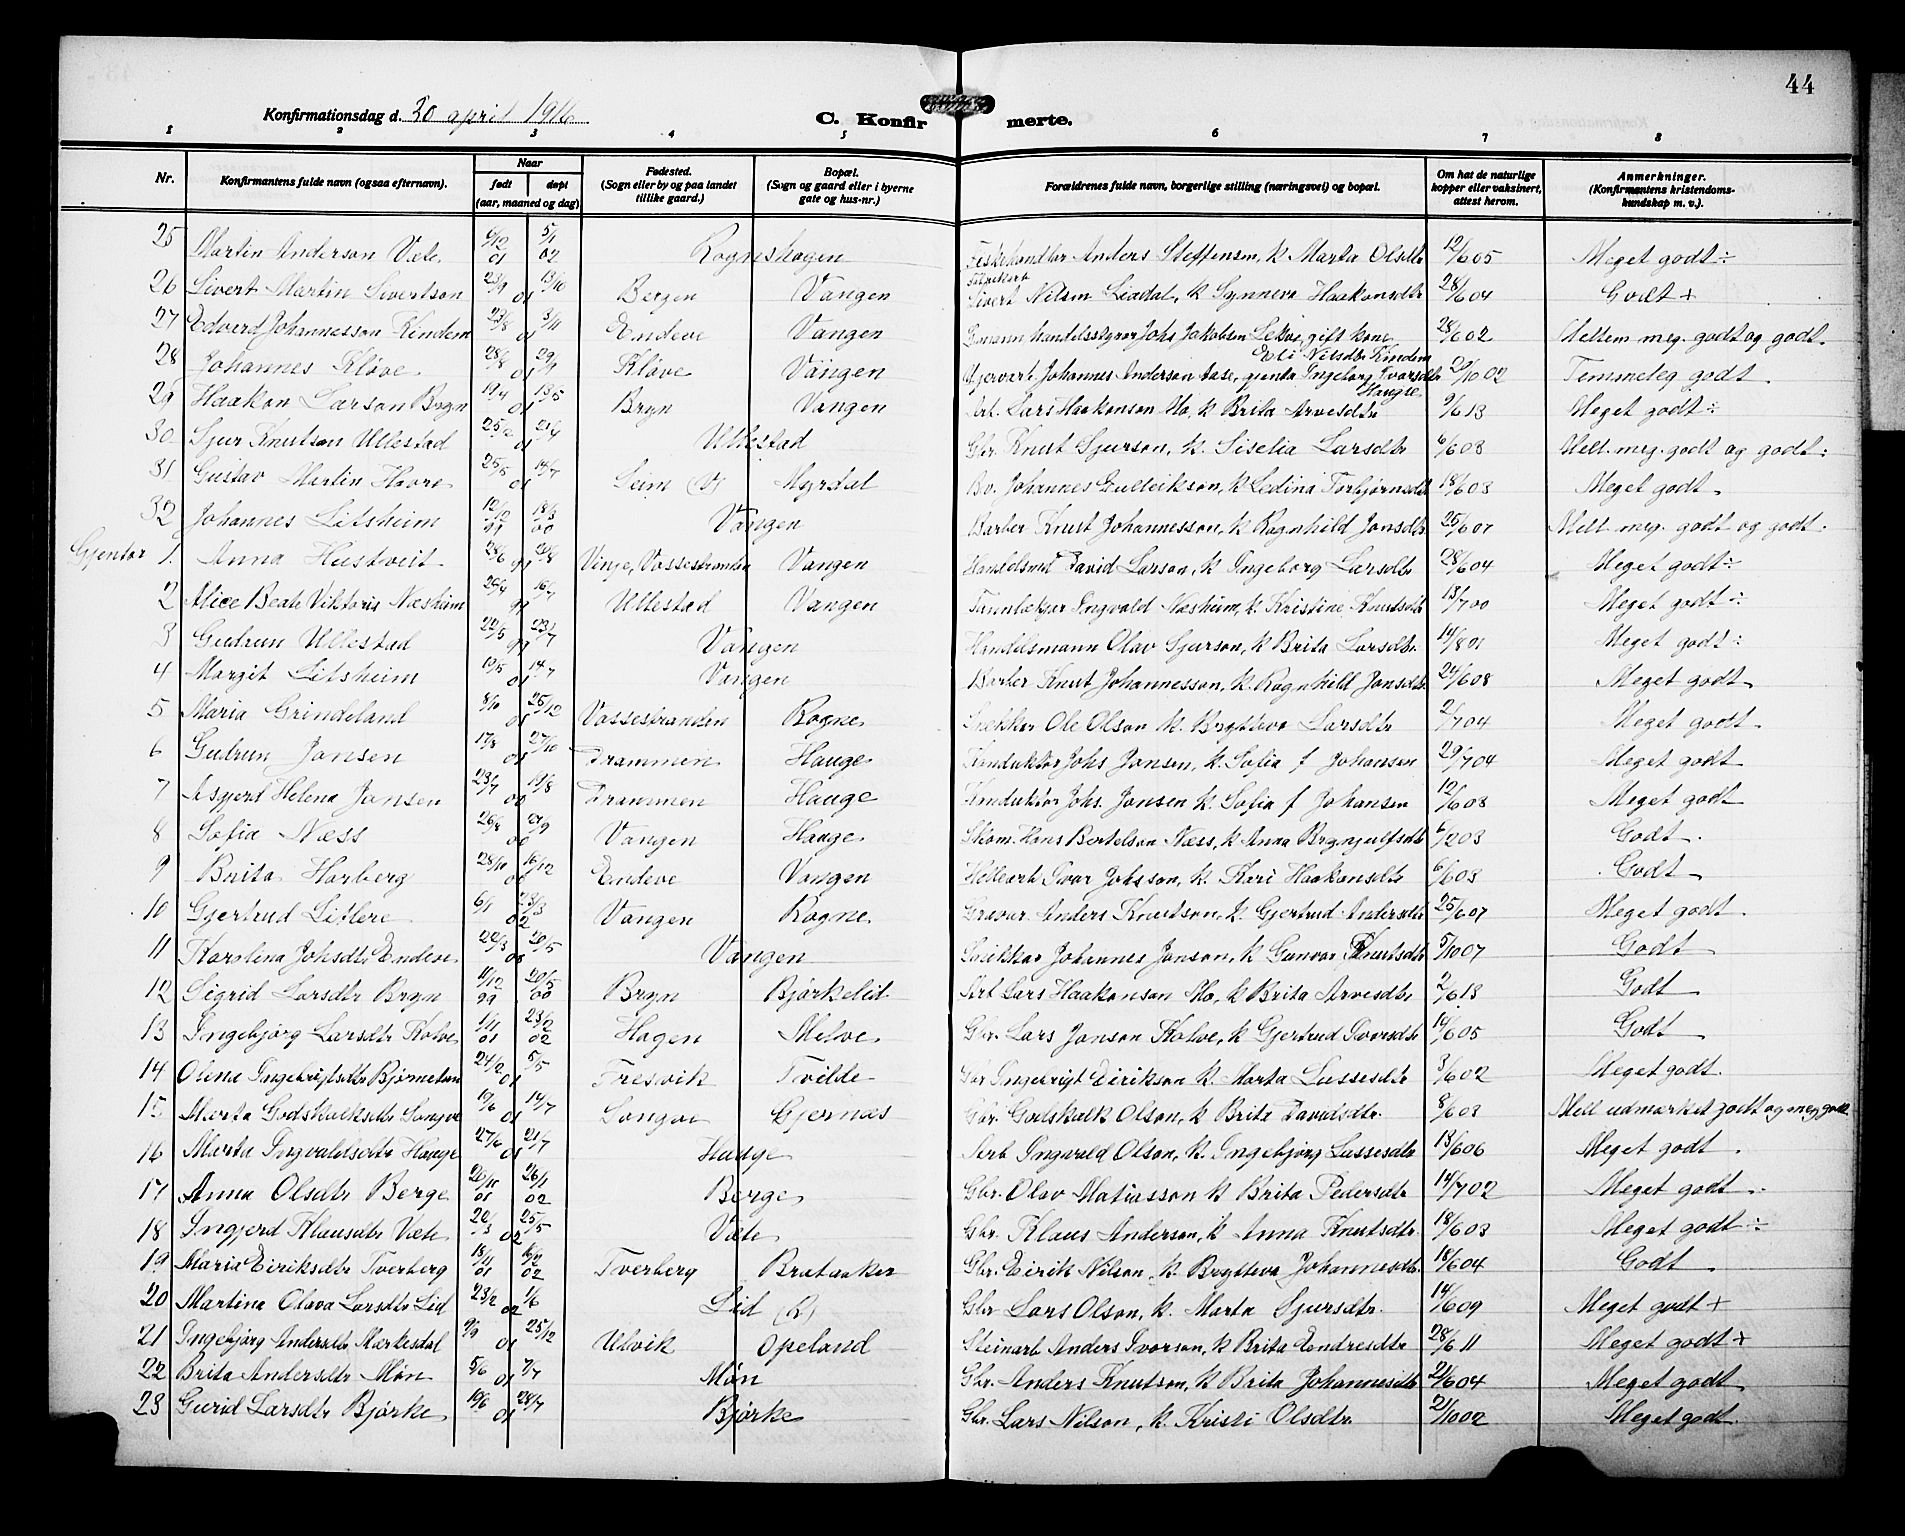 44
Konfirmationsdag d. 30 april 1916
C. Konfirmerte.
1 2 3 4 5 6 7 8
Nr. Konfirmantens fulde navn (ogsaa efternavn). Naar født døpt (aar, maaned og dag) Fødested. (Sogn eller by og paa landet tillike gaard.) Bopæl. (Sogn og gaard eller i byerne gate og hus-nr.) Forældrenes fulde navn, borgerlige stilling (næringsvei) og bopæl. Om hat de naturlige kopper eller vaksinert, attest herom. Anmerkninger. (Konfirmantens kristendomskundskap m. v.).
25 Martin Anderson Væte 6/12 01 5/1 02 Rognshagen Fiskehandlar Anders Steffenson, k Marta Olsdtr 12/6 05 Meget godt ÷
26 Sivert Martin Sivertson 23/9 13/10 01 Bergen Vangen Sivert Nilsen Liadal, k Synneva Haakonsdtr 28/6 04 Godt +
27 Edverd Johannesson Kindem 23/8 3/11 01 Endeve Vangen Handelsstyrar Johs Jakobsen Lekve, gift kone Eli Nilsdtr Kindem 28/6 02 Mellem meg. godt og godt.
28 Johannes Kløve 28/8 29/9 01 Kløve Vangen Johannes Anderson Aase, gjenta Ingeborg Ivarsdtr Haugse 20/10 02 Temmeleg godt.
29 Haakon Larson Bryn 19/4 13/5 01 Bryn Vangen Arb. Lars Haakonson Mo, k Brita Arvesdtr 9/6 13 Meget godt ÷
30 Sjur Knutson Ullestad 25/2 21/4 01 Ullestad Gbr. Knut Sjurson, k. Siselia Larsdtr 6/6 03 Mell. meg. godt og godt.
31 Gustav Martin Haore 25/5 14/7 01 Seim (V) Myrdal Bo. Johannes Gulleikson, k Ledina Torbjørnsdtr 18/6 03 Meget godt.
32 Johannes Litsheim 12/12 99 18/3 00 Vangen Barber Knut Johannesson, k Ragnhild Jonsdtr 25/6 07 Mell meg. godt og godt.
Gjentor 1. Anna Hustveit 28/6 20/8 99 Vinje, Vossestranden Vangen Handelsm David Larson, k Ingeborg Larsdtr 28/6 04 Meget godt ÷
2 Alice Beate Viktoria Næsheim 26/4 16/7 99 Ullestad Vangen Tannlækjar Ingvald Næsheim, k. Kristine Knutsdtr 13/7 00 Meget godt ÷
3 Gudrun Ullestad 22/5 23/7 99 Vangen Handelsmann Olav Sjurson, k Brita Larsdtr. 14/8 01 Meget godt ÷
4 Margit Litsheim 19/5 14/7 01 Vangen Barber Knut Johannesson, k. Ragnhild Jonsdtr. 24/6 08 Meget godt.
5 Maria Grindeland 8/10 25/12 01 Vossestranden Rogne Ole Olson k. Brytteva Larsdtr 2/7 04 Meget godt.
6 Gudrun Jansen 17/8 27/10 01 Drammen Hauge Konduktør Johs Jansen, k. Sofia f Johansen 29/7 04 Meget godt
7 Asgjerd Helena Jansen 23/7 19/8 00 Drammen Hauge Konduktør Johs. Jansen k. Sofia f Johansen 12/6 03 Meget godt
8 Sofia Næss 26/8 21/9 00 Vangen Hauge Skom. Hans Bertelson Næss, k Anna Brynjulfsdtr 6/2 03 Godt.
9 Brita Horberg 28/10 16/12 00 Endeve Vangen Ivar Johsson, k. Kari Haakonsdtr 6/6 03 Godt
10 Gjertrud Litlere 6/1 23/3 02 Vangen Rogne Gravar. Anders Knutson, k. Gjertrud Andersdtr 25/6 07 Meget godt.
11 Karolina Johsdtr Endeve 22/3 20/5 00 Vangen Snikkar Johannes Janson, k Gunvor Knutsdtr 5/10 07 Godt
12 Sigrid Larsdtr Bryn 11/12 99 20/5 00 Bryn Bjørkelid Arb Lars Haakonson Mo, k Brita Arvesdtr 2/6 13 Godt
13 Ingebjørg Larsdtr Kolve 1/11 01 23/2 02 Hagen Melve Gbr. Lars Janson Kolve, k Gjertrud Ivarsdtr 14/6 05 Godt
14 Olina Ingebrigtsdtr Bjørnetun 24/2 5/5 01 Fresvik Tvilde Ingebrigt Eirikson k. Marta Lussesdtr 3/6 02 Meget godt.
15 Marta Godskalksdtr Songve 19/6 14/7 01 Songve Gjernes Gbr. Godskalk Olson, k Brita Davidsdtr. 8/6 03 Mell udmærket godt og meg godt
16 Marta Ingvaldsdtr Hauge 27/6 21/7 01 Hauge Arb Ingvald Olson, k. Ingebjørg Lussesdtr 13/6 06 Meget godt.
17 Anna Olsdtr Berge 20/11 01 26/1 02 Berge Gbr. Olav Matiasson k Brita Pedersdtr 14/7 02 Meget godt.
18 Ingjerd Klausdtr Væte 22/3 25/5 02 Væte Gbr. Klaus Anderson, k Anna Knutsdtr. 18/6 03 Meget godt ÷
19 Maria Eiriksdtr Tverberg 18/11 01 16/2 02 Tverberg Brataaker Gbr. Eirik Nilson, k Brytteva Johannesdtr. 18/6 04 Godt.
20 Martina Olava Larsdtr Lid 23/2 1/6 02 Lid (R) Gbr Lars Olson, k. Marta Sjursdtr. 14/6 09 Meget godt +
21 Ingebjørg Andersdtr Mørkesdal 9/9 25/12 01 Ulvik Opeland Steinarb Anders Ivarson, k Brita Endresdtr 28/6 11 Meget godt +
22 Brita Andersdtr Møn 5/6 7/7 01 Møn Gbr. Anders Knutson, k Brita Johannesdtr 21/6 04 Meget godt.
23 Gurid Larsdtr Bjørke 10/6 28/7 01 Bjørke Gbr. Lars Nilson, k. Kristi Olsdtr. 21/10 02 Meget godt.